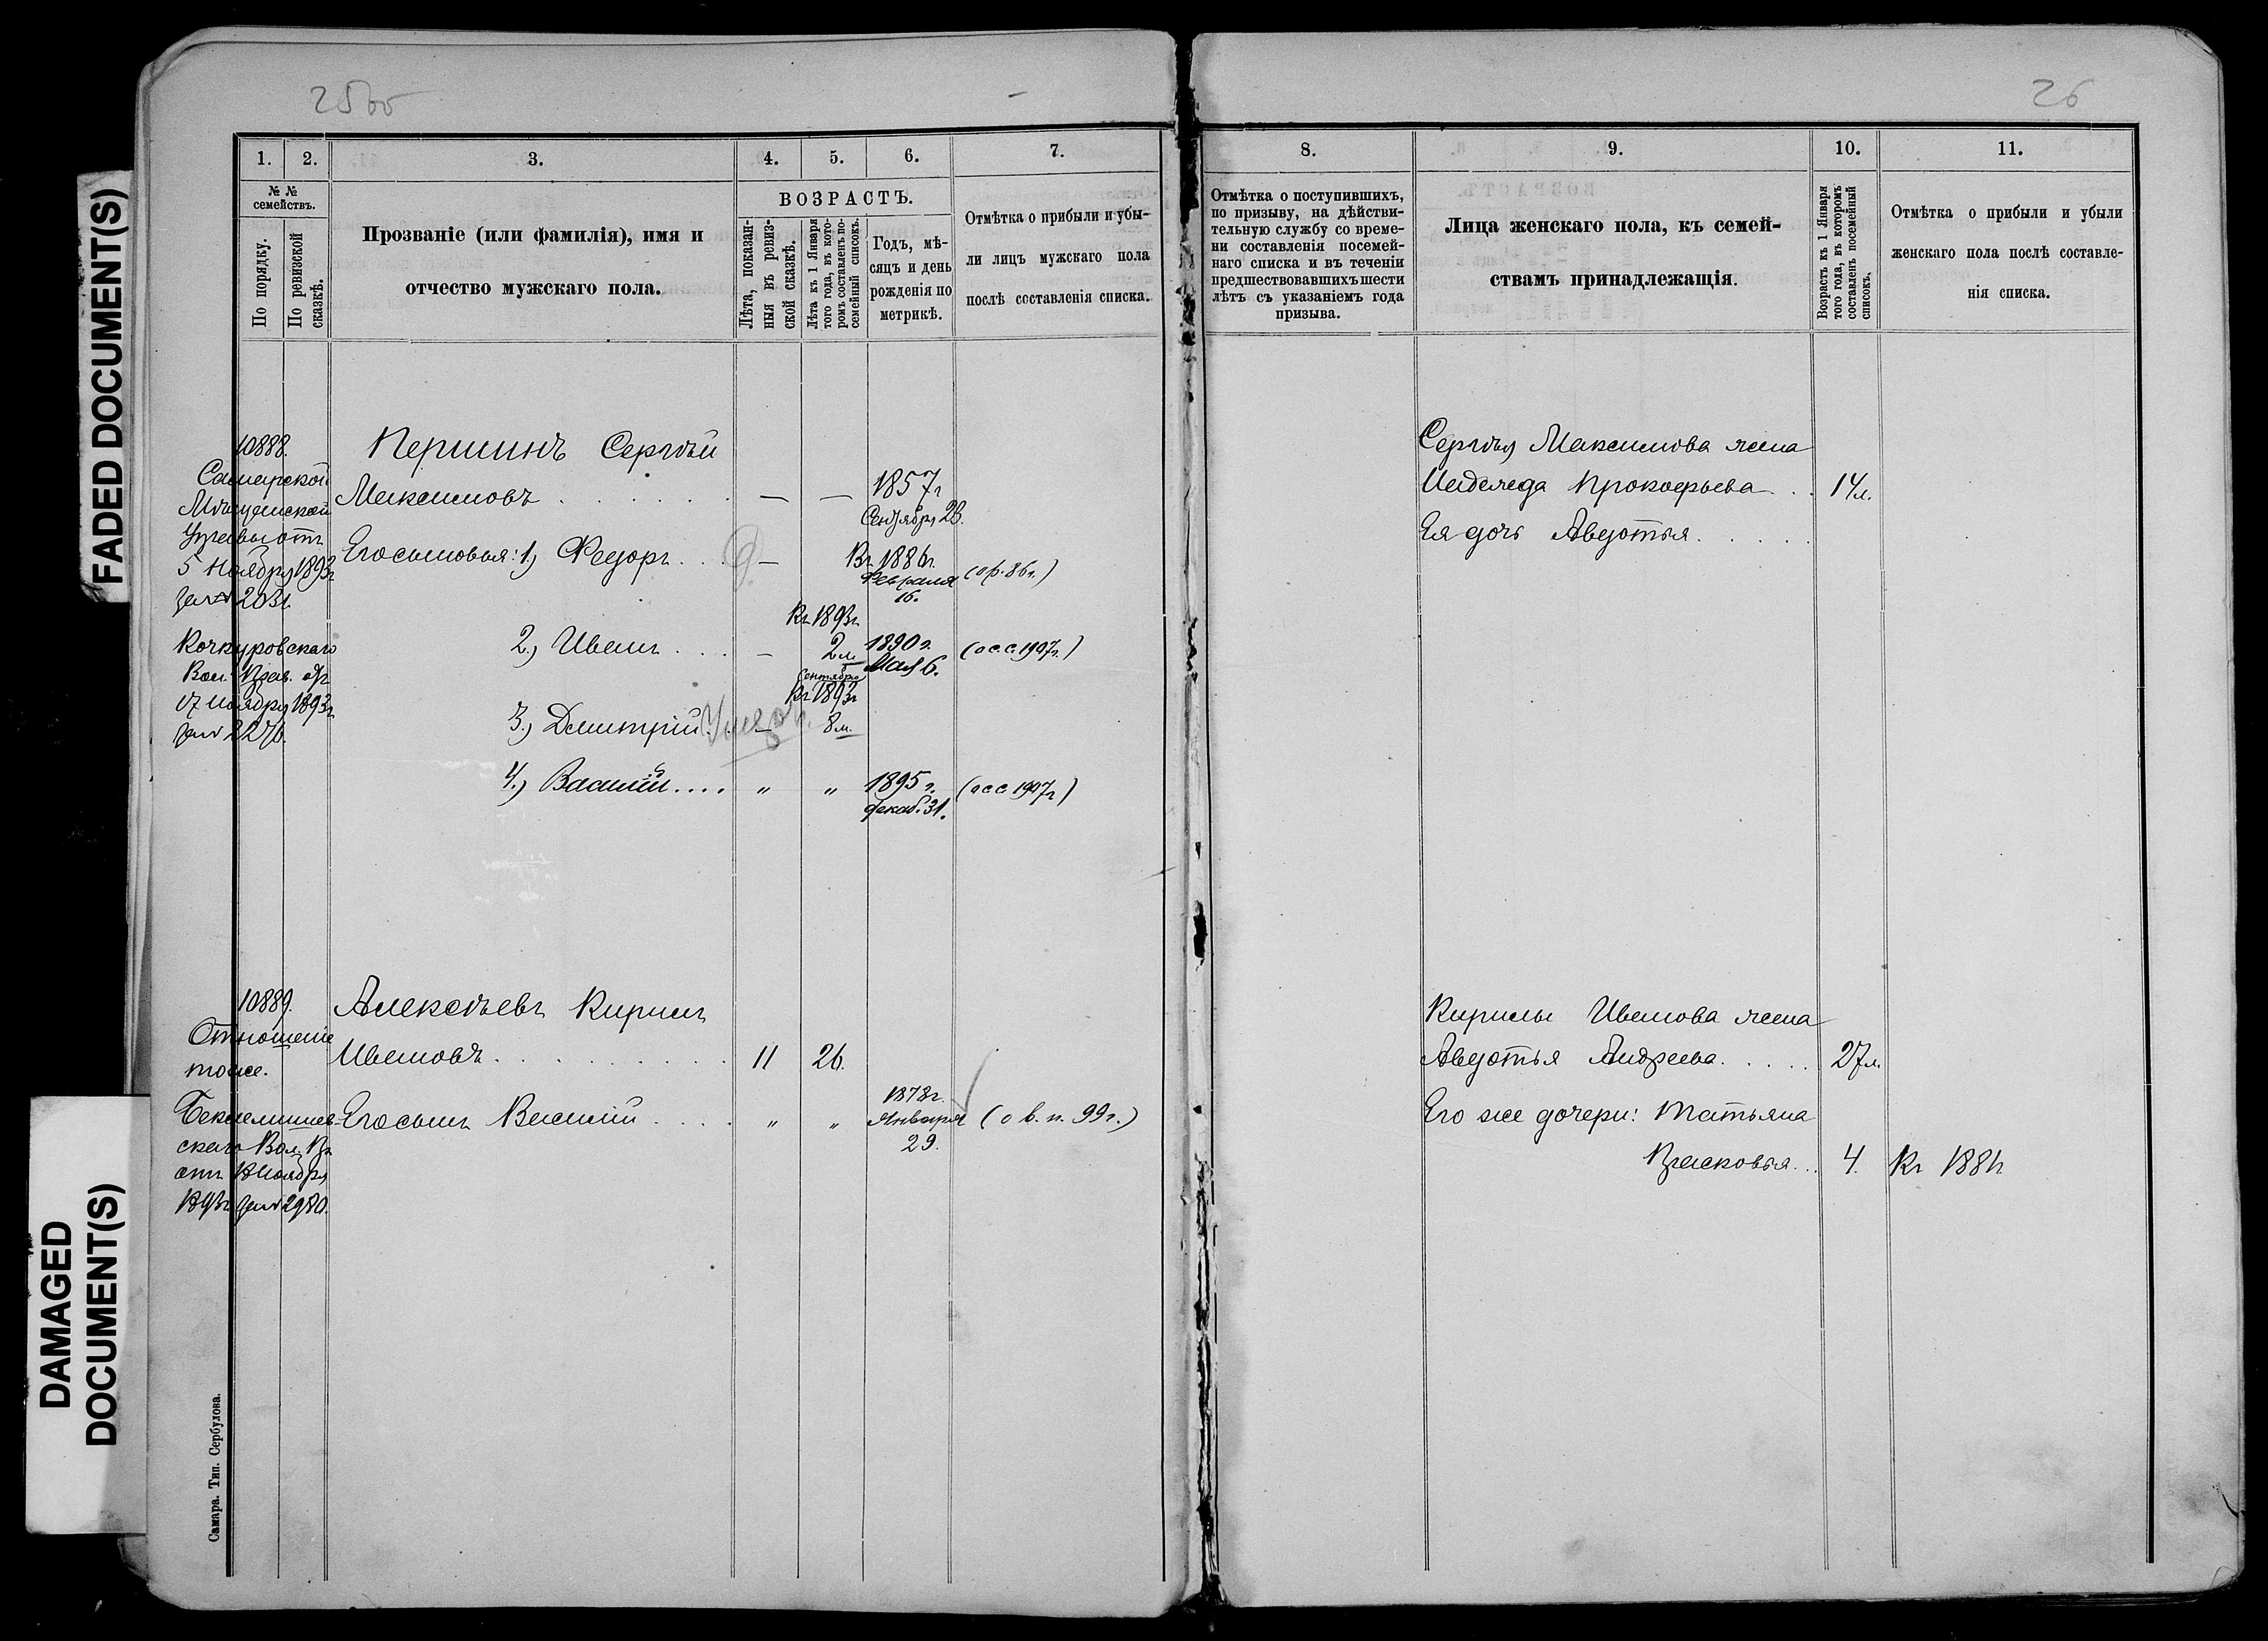 FADED DOCUMENT(S)
DAMAGED
DOCUMENT(S)
25об
1.
2.
3.
4.
5.
6.
7.
№ №
семействъ.
По порядку.
По ревизской
сказкѣ.
Прозваніе (или фамилія), имя и
отчество мужскаго пола.
ВОЗРАСТЪ.
Лѣта, показан-
ныя въ ревиз-
ской сказкѣ.
Лѣта къ 1 Января
того года, въ кото-
ромъ составленъ по-
семейный списокъ.
Годъ, мѣ-
сяцъ и день
рожденія по
метрикѣ.
Отмѣтка о прибыли и убы-
ли лицъ мужскаго пола
послѣ составленія списка.
10888.
Самарской
Мѣщанской
Управы отъ
5 Ноября 1893г
за № 2031.
Кочкуровскаго
Вол. Прав. отъ
17 Ноября 1893г
за № 2276.
Першинъ Сергѣй
Максимовъ . . . . . . — —
1857г
Сентября 23.
Его сыновья: 1) Федоръ . . . —
Въ 1886г.
Февраля
16.
(ор. 86г.)
Въ 1893г
2.) Иванъ . . . — 2 л.
1890г.
Мая 6.
(о с с. 1907г.)
Сентября
Въ 1893г
3.) Дмитрій . . — 8 м.
4.) Василій . . . . „ „
1895г.
Декаб. 31.
(о с с. 1907г)
10889.
Отношеніе
тоже.
Бекшемишев-
скаго Вол. Пр.
отъ Ноября
1893г за № 2980.
Алексѣевъ Кирилъ
Ивановъ . . . . . . . . . 11 26.
Его сынъ Василій . . . . „ „
1878г.
Января
29.
(о в. п. 99г.)
Самара. Тип. Сербулова.
26
8.
9.
10.
11.
Отмѣтка о поступившихъ,
по призыву, на дѣйстви-
тельную службу со време-
ни составленія посемей-
наго списка и въ теченіи
предшествовавшихъ шести
лѣтъ съ указаніемъ года
призыва.
Лица женскаго пола, къ семей-
ствамъ принадлежащія.
Возрастъ къ 1 Января
того года, въ которомъ
составленъ посемейный
списокъ.
Отмѣтка о прибыли и убыли
женскаго пола послѣ составле-
нія списка.
Сергѣя Максимова жена
Прокофьева . . 14 л.
Ея дочь Авдотья . . . . .
Кирилы Иванова жена
Авдотья Андреева . . . . . 27 л.
Его же дочери: Татьяна
Прасковья . . 4.